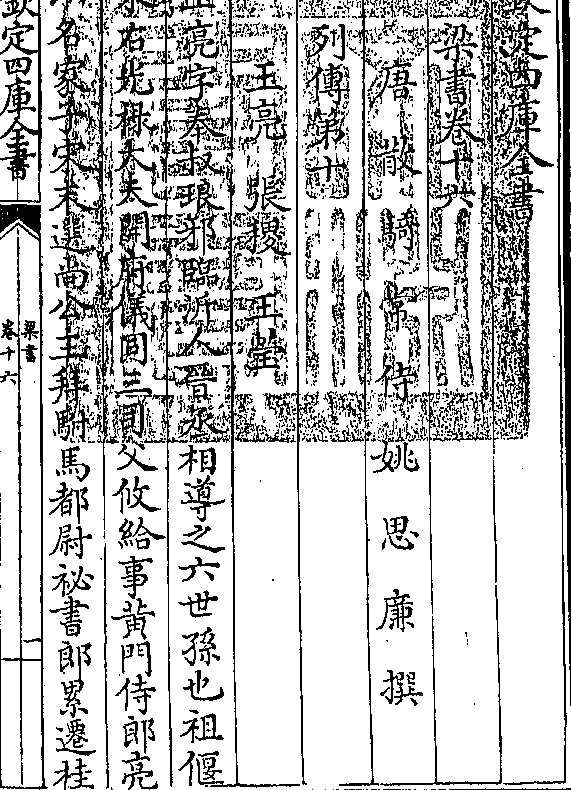 欽定四庫全書
梁書卷十六
唐散騎常侍姚思廉撰
列傳第十
王亮 張稷 王瑩
王亮字奉叔琅邪臨沂人晉丞相導之六世孫也祖偃
宋右光祿大夫開府儀同三司父攸給事黃門侍郎亮
以名家子宋末選尚公主拜駙馬都尉祕書郎累遷桂
欽定四庫全書
梁書
卷十六
一